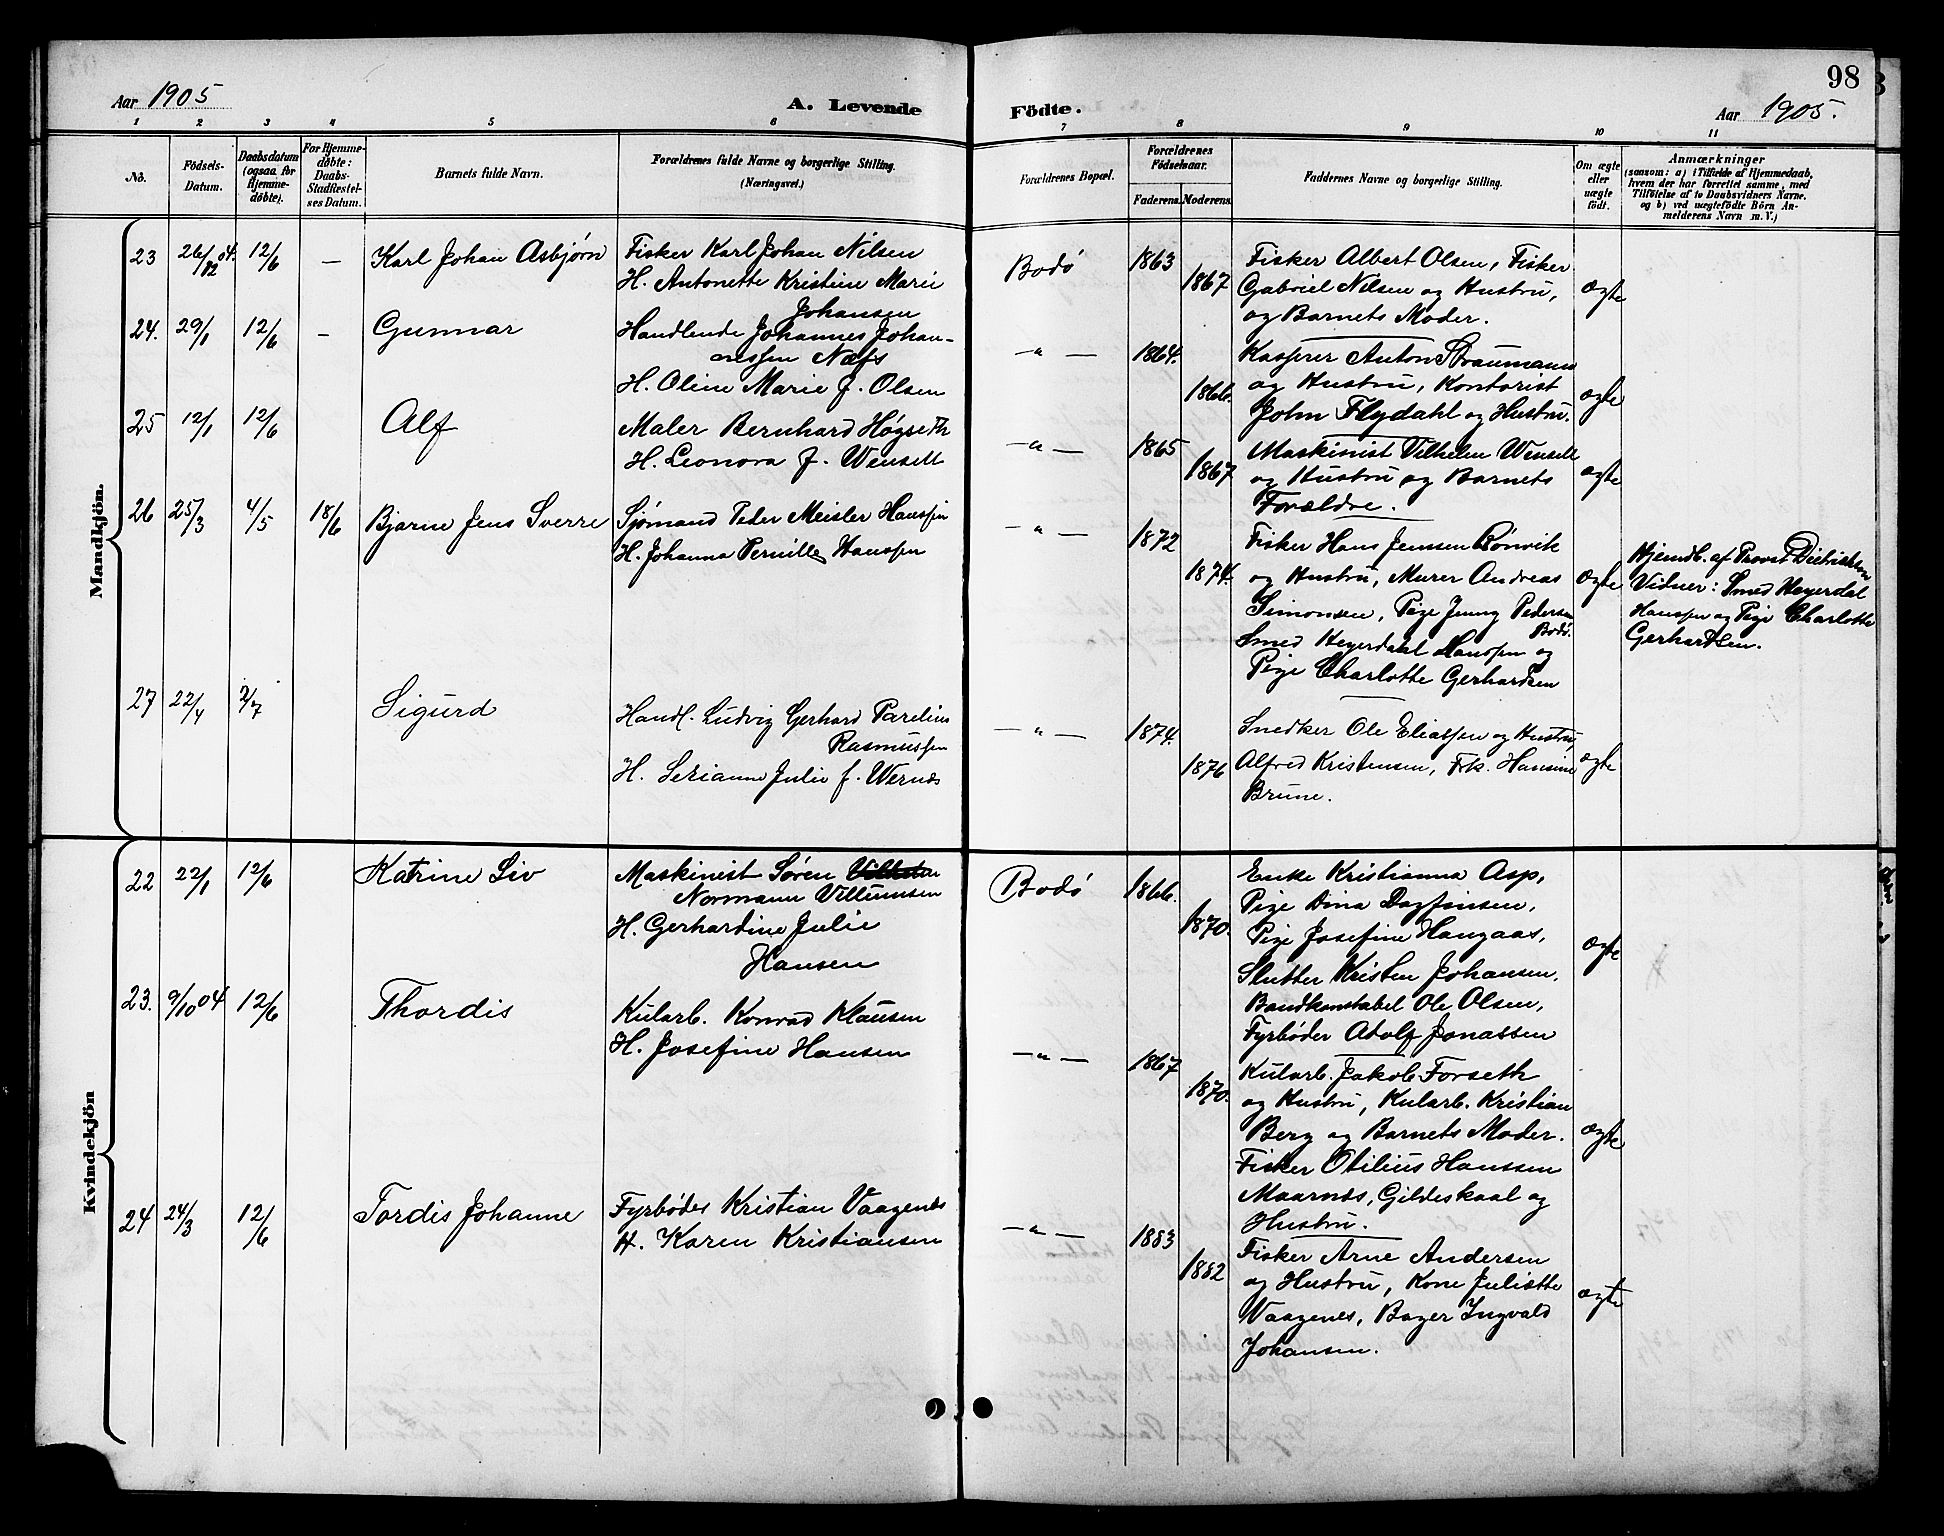 98
Aar 1905
A. Levende
Födte.
Aar 1905.
1 2 3 4 5 6 7 8 9 10 11
No.
Födsels-
Datum.
Daabsdatum
(ogsaa for
Hjemme-
döbte).
For Hjemme-
döbte:
Daabs-
Stadfæstel-
ses Datum.
Barnets fulde Navn.
Forældrenes fulde Navne og borgerlige Stilling.
(Næringsvei.)
Forældrenes Bopæl.
Forældrenes
Födselsaar.
Faderens. Moderens.
Faddernes Navne og borgerlige Stilling.
Om ægte
eller
uægte
födt.
Anmærkninger
(saasom: a) i Tilfælde af Hjemmedaab,
hvem der har forrettet samme, med
Tilföielse af to Daabsvidners Navne.
og b) ved uægtefödte Börn An-
melderens Navn m. V.)
Mandkjön.
23 26/12 04. 12/6 — Karl Johan Asbjørn
Fisker Karl Johan Nilsen
H. Antonette Kristine Marie
Johansen
Bodø 1863 1867
Fisker Albert Olsen, Fisker
Gabriel Nilsen og Hustru,
og Barnets Moder.
ægte
24. 29/1 12/6 — Gunnar
Handlende Johannes Johan-
nessen Næss
H. Oline Marie f. Olsen
—"— 1864. 1866.
Kasserer Anton Straumann
og Hustru, Kontorist
John Flydahl og Hustru.
ægte
25 12/1 12/6 Alf
Maler Bernhard Høgseth
H. Leonora f. Wensell
—"— 1865 1867
Maskinist Vilhelm Wensell
og Hustru og Barnets
Forældre.
ægte
26 25/3 4/5 18/6 Bjarne Jens Sverre
Sjømand Peder Meisler Hanssen
H. Johanna Pernille Hanssen
—"— 1872 1874.
Fisker Hans Jenssen Rønvik
og Hustru, Murer Andreas
Simonsen, Pige Jenny Pedersen
Bodø.
Smed Heyerdahl Hanssen og
Pige Charlotte Gerhardsen
ægte
Hjemdb. af Provst Dietrichson
Vidner: Smed Heyerdal
Hanssen og Pige Charlotte
Gerhardsen.
27 22/4 2/7 Sigurd
Handl. Ludvig Gerhard Parelius
Rasmussen
H. Serianne Julie f. Wernæs
—"— 1874. 1876
Snedker Ole Eliassen og Hustru,
Alfred Kristensen, Frk. Hansine
Brune.
ægte
Kvindekjön
22 22/1 12/6 Katrine Liv
Maskinist Søren
Normann Villumsen
H. Gerhardine Julie
Hansen
Bodø 1866. 1870.
Enke Kristianna Asp,
Pige Dina Dagfinsen,
Pige Josefine Haugaas,
Slutter Kristen Johansen,
Bandkonstabel Ole Olsen,
Fyrbøder Adolf Jonassen
ægte
23. 9/10 04 12/6 Thordis
Kularb. Konrad Klausen
H. Josefine Hansen
—"— 1867 1870.
Kularb. Jakob Forseth
og Hustru, Kularb. Kristian
Berg og Barnets Moder.
Fisker Otilius Hanssen
Maarnæs, Gildeskaal og
Hustru.
ægte
24 24/3 12/6 Tordis Johanne
Fyrbøder Kristian Vaagenæs
H. Karen Kristiansen
—"— 1883 1882
Fisker Arne Andersen
og Hustru, Kone Juliette
Vaagenes, Bager Ingvald
Johansen.
ægte